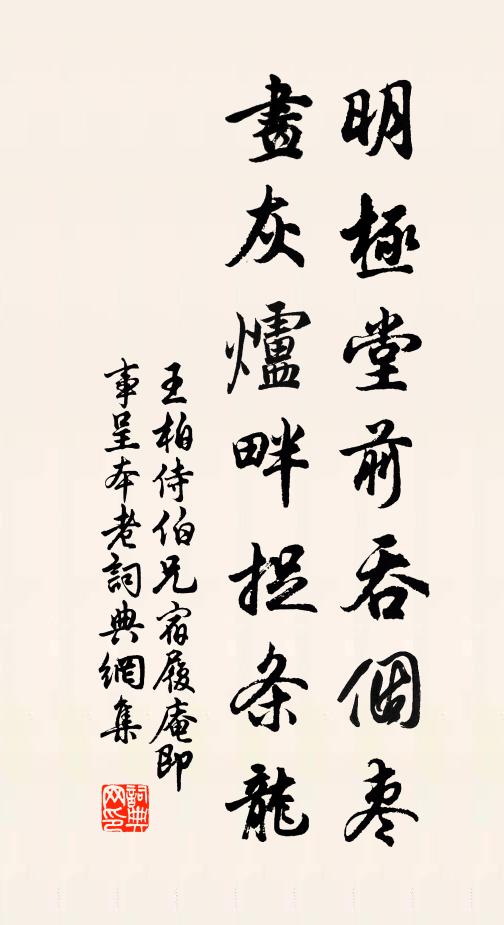 明極堂前吞個棗
畫灰爐畔捉条龍
王柏侍伯兄宿履庵即
事呈本老詞典網集
詞典網印